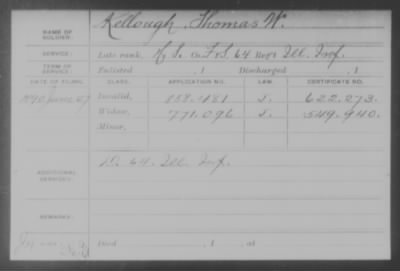 NAME OF SOLDIER: Kellough, Thomas W.
SERVICE: Late rank, Co. F&S, 64 Reg't Ill. Inf.
TERM OF SERVICE: Enlisted , 1 Discharged , 1
DATE OF FILING. CLASS. APPLICATION NO. LAW. CERTIFICATE NO.
1890 June 27 Invalid, 858.481 J. 622.073.
Widow, 771.096 J. 549.940.
Minor,
ADDITIONAL SERVICES: D. 64 Ill. Inf.
REMARKS:
Died , 1 , at